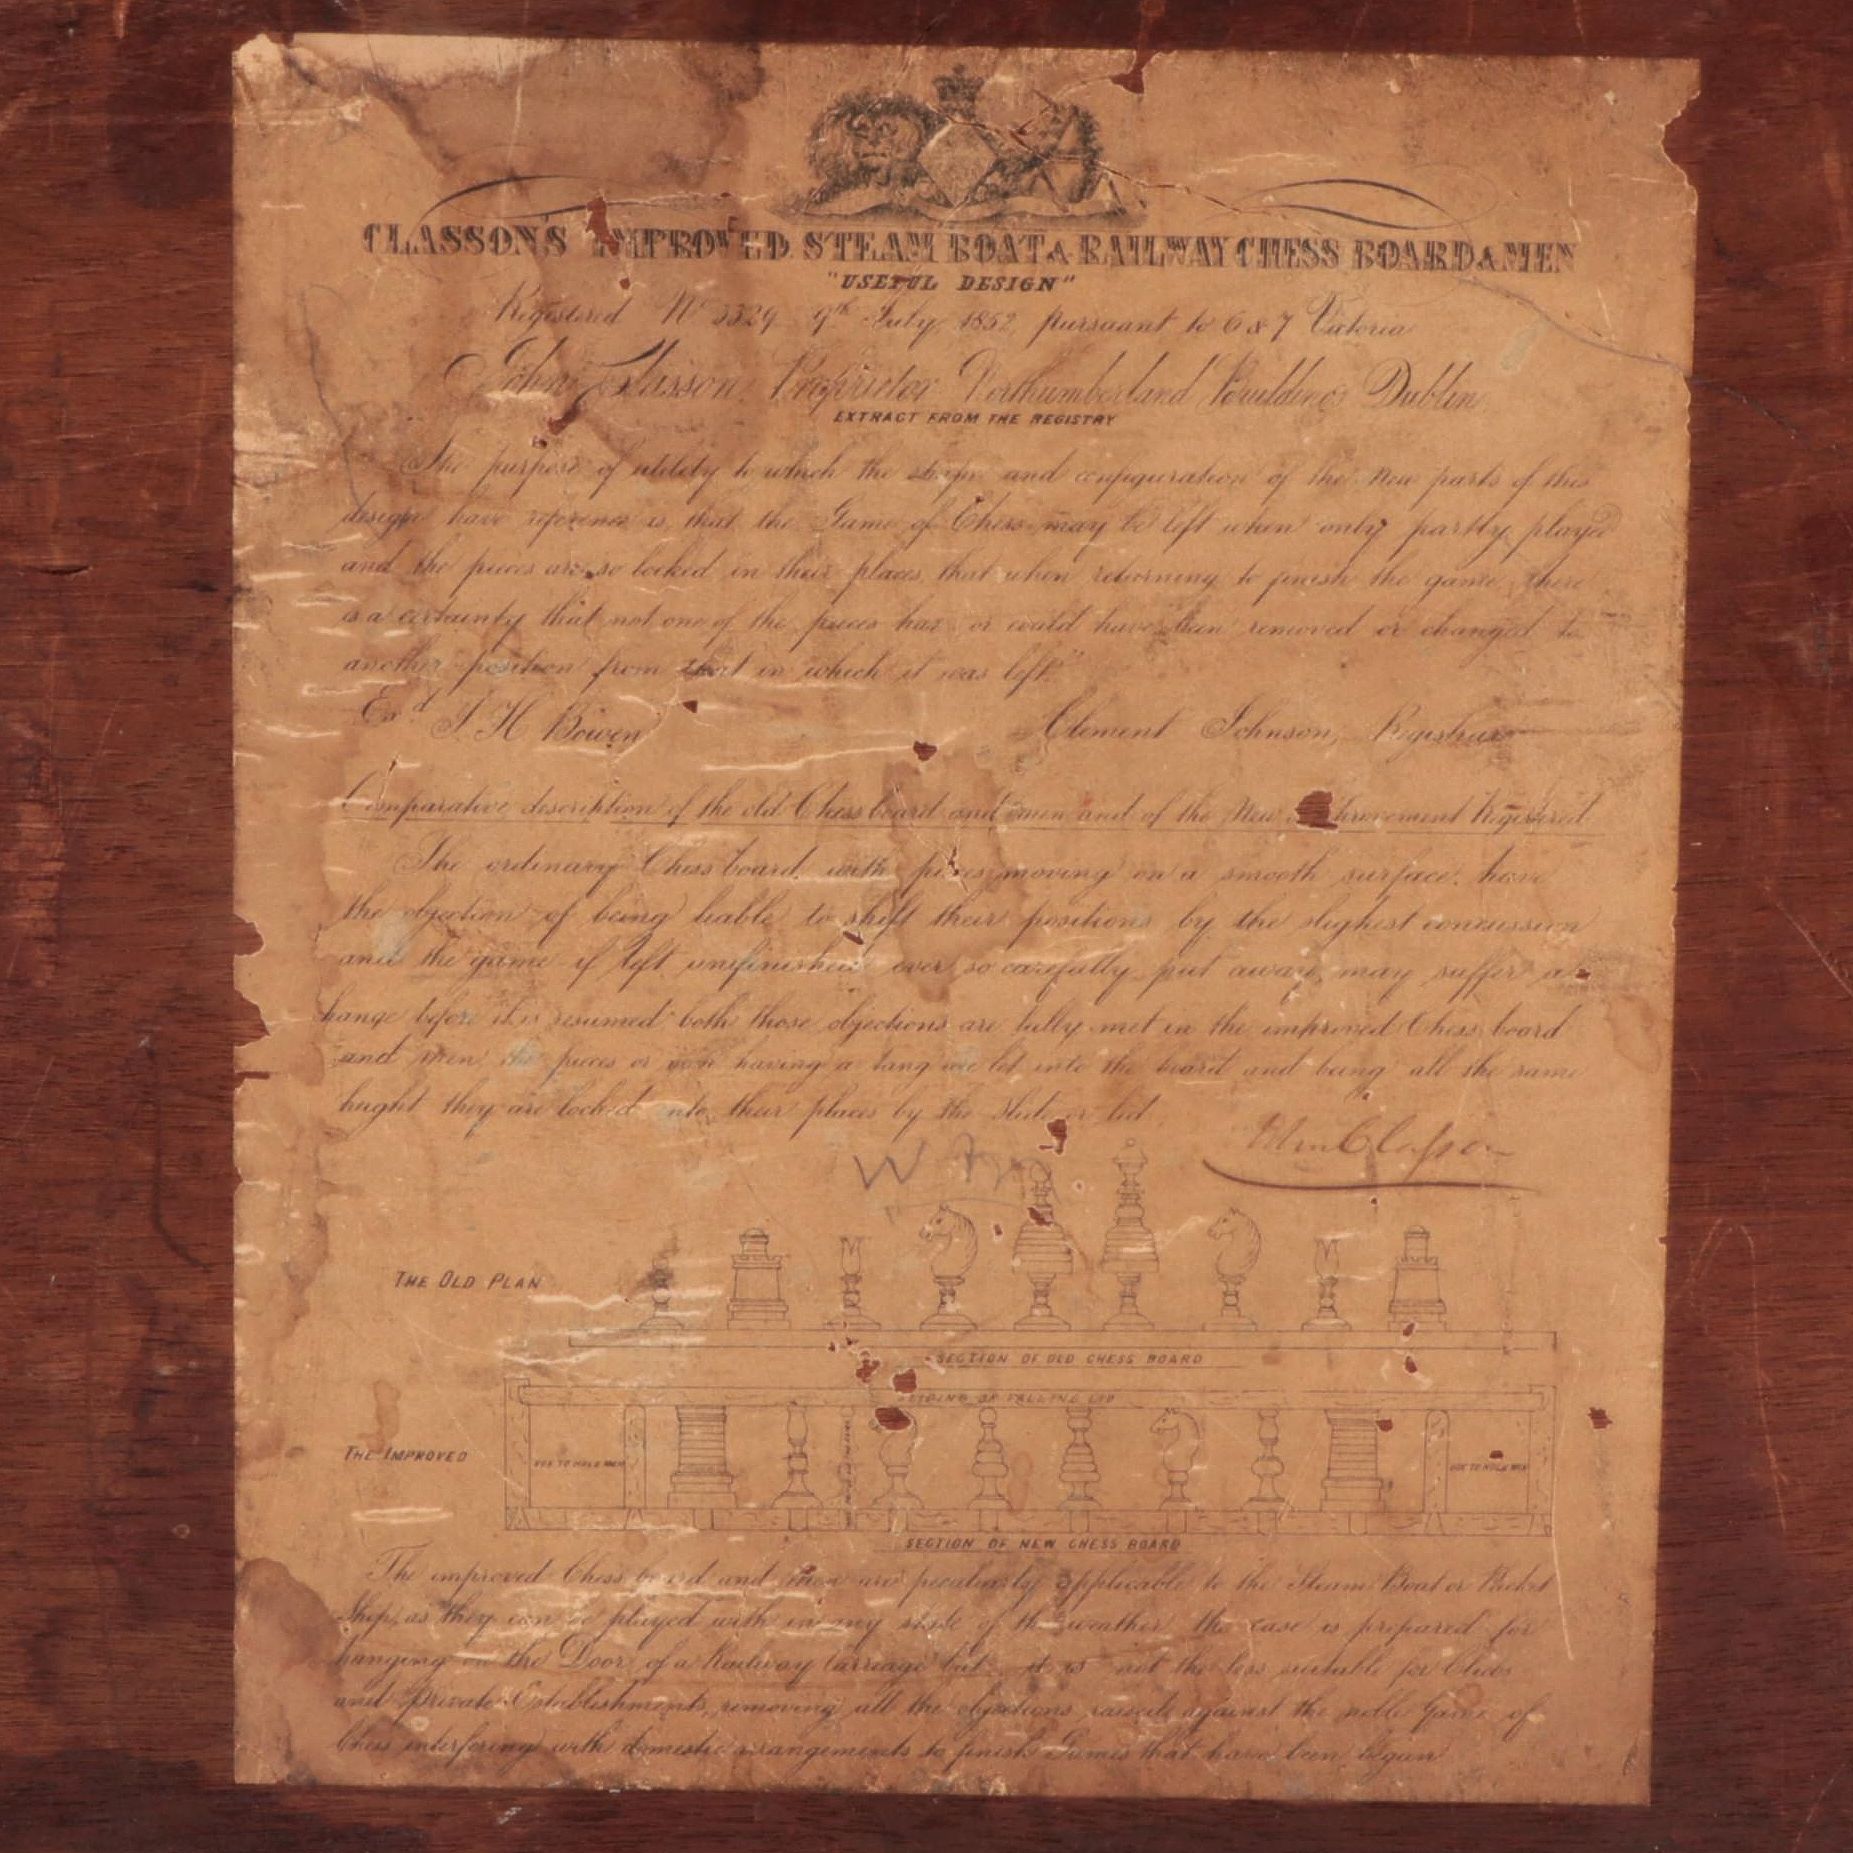 CLASSON'S IMPROVED STEAM BOAT & RAILWAY CHESS BOARD & MEN
"USEFUL DESIGN"
Registered No 3329 9th July, 1852, pursuant to 6 & 7 Victoria
John Classon, Proprietor Northumberland Buildings Dublin
EXTRACT FROM THE REGISTRY
The purpose of utility to which the shape and configuration of the New parts of this
design have reference is, that the Game of Chess may be left when only partly played
and the pieces are so locked in their places, that when returning to finish the game, there
is a certainty that not one of the pieces has or could have been removed or changed to
another position from that in which it was left"
Exd J. H. Bowen
Clement Johnson, Registrar
Comparative description of the old Chess board and men and of the New Improvement Registered
The ordinary Chess board, with pieces moving on a smooth surface, have
the objection of being liable to shift their positions by the slighest concussion
and the game if left unfinished ever so carefully put away, may suffer a
hange before it is resumed both those objections are fully met in the improved Chess board
and men the pieces or men having a tang let into the board and being all the same
height they are locked into their places by the slide or lid.
John Classon
W
THE OLD PLAN
SECTION OF OLD CHESS BOARD
SLIDING OR FALLING LID
THE IMPROVED
BOX TO HOLD MEN
BOX TO HOLD MEN
SECTION OF NEW CHESS BOARD
The improved Chess board and men are peculiarly applicable to the Steam Boat or Packet
Ship, as they can be played with in any state of the weather the case is prepared for
hanging on the Door of a Railway Carriage but it is not the less suitable for Clubs
and Private Establishments, removing all the objections against the noble Game of
Chess interfering with domestic arrangements to finish Games that have been began